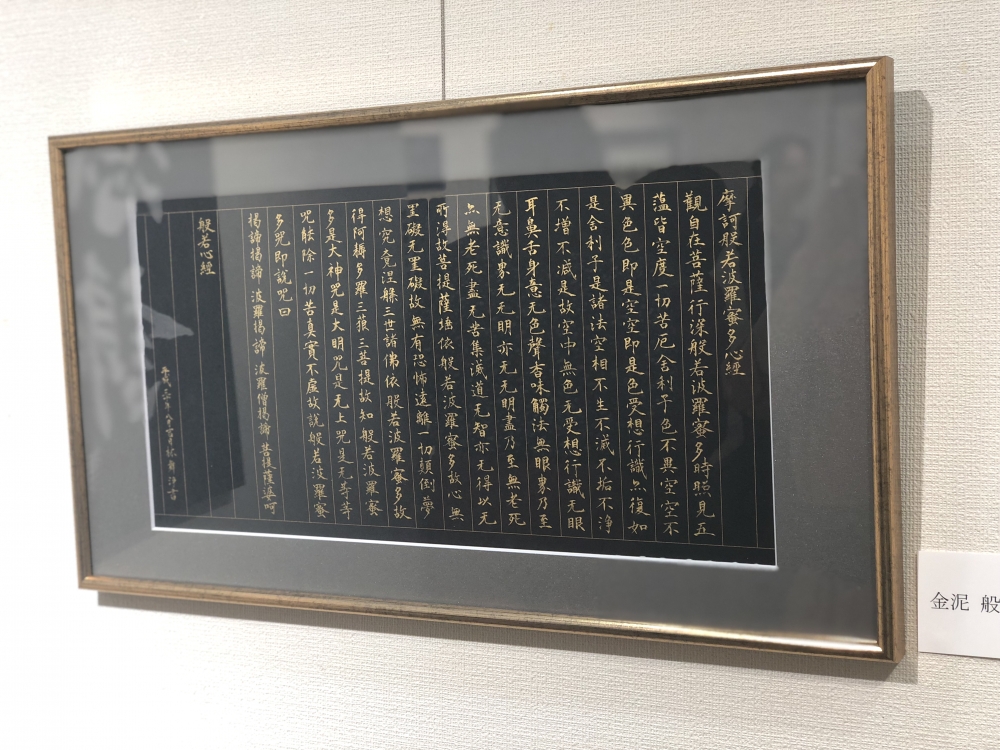 摩訶般若波羅蜜多心經
觀自在菩薩行深般若波羅蜜多時照見五
蘊皆空度一切苦厄舍利子色不異空空不
異色色即是空空即是色受想行識亦復如
是舍利子是諸法空相不生不滅不垢不浄
不増不滅是故空中無色无受想行識无眼
耳鼻舌身意无色聲香味觸法無眼界乃至
无意識界无无明亦无无明盡乃至無老死
亦無老死盡无苦集滅道无智亦无得以无
所得故菩提薩埵依般若波羅蜜多故心無
罣礙无罣礙故無有恐怖遠離一切顛倒夢
想究竟涅槃三世諸佛依般若波羅蜜多故
得阿耨多羅三藐三菩提故知般若波羅蜜
多是大神咒是大明咒是无上咒是无等等
咒能除一切苦真實不虚故説般若波羅蜜
多咒即説咒曰
揭諦揭諦 波羅揭諦 波羅僧揭諦 菩提薩婆呵
般若心經
平成
金泥 般